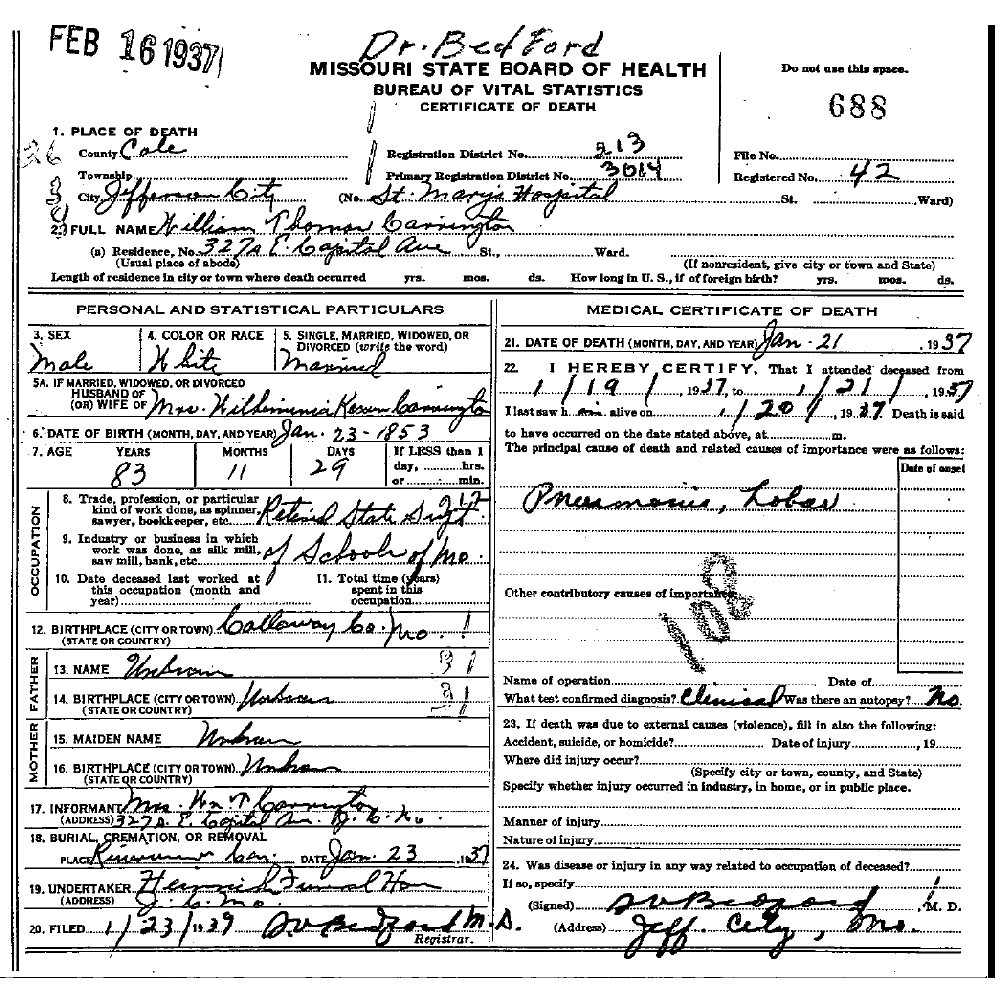 FEB 16 1937
Dr. Bedford
MISSOURI STATE BOARD OF HEALTH
BUREAU OF VITAL STATISTICS
CERTIFICATE OF DEATH
Do not use this space.
688
1. PLACE OF DEATH
County Cole
Registration District No. 213
File No.
Township
Primary Registration District No. 3014
Registered No. 42
City Jefferson City (No. St. Marys Hospital St. Ward)
2. FULL NAME William Thomas Carrington
(a) Residence, No. 327A E. Capitol Ave St., Ward.
(Usual place of abode) (If nonresident, give city or town and State)
Length of residence in city or town where death occurred yrs. mos. ds. How long in U. S., if of foreign birth? yrs. mos. ds.
PERSONAL AND STATISTICAL PARTICULARS
3. SEX
Male
4. COLOR OR RACE
White
5. SINGLE, MARRIED, WIDOWED, OR
DIVORCED (write the word)
Married
5A. IF MARRIED, WIDOWED, OR DIVORCED
HUSBAND OF
(OR) WIFE OF Mrs. Carrington
6. DATE OF BIRTH (MONTH, DAY, AND YEAR) Jan. 23 - 1853
7. AGE YEARS MONTHS DAYS If LESS than 1
day, hrs.
or min.
83 11 29
OCCUPATION
8. Trade, profession, or particular
kind of work done, as spinner,
sawyer, bookkeeper, etc. Retired State Supt.
9. Industry or business in which
work was done, as silk mill,
saw mill, bank, etc. of Schools of Mo.
10. Date deceased last worked at
this occupation (month and
year)
11. Total time (years)
spent in this
occupation
12. BIRTHPLACE (CITY OR TOWN) Calloway Co. Mo.
(STATE OR COUNTRY)
FATHER
13. NAME Unknown
14. BIRTHPLACE (CITY OR TOWN) Unknown
(STATE OR COUNTRY)
MOTHER
15. MAIDEN NAME Unknown
16. BIRTHPLACE (CITY OR TOWN) Unknown
(STATE OR COUNTRY)
17. INFORMANT Mrs. Wm T Carrington
(ADDRESS) 327A. E. Capitol Ave. J. C. Mo.
18. BURIAL, CREMATION, OR REMOVAL
PLACE Riverview Cem. DATE Jan. 23 1937
19. UNDERTAKER Heinrich Funeral Home
(ADDRESS) J. C. Mo.
20. FILED 1/23/1937 Bedford M. D.
Registrar.
MEDICAL CERTIFICATE OF DEATH
21. DATE OF DEATH (MONTH, DAY, AND YEAR) Jan - 21, 1937
22. I HEREBY CERTIFY, That I attended deceased from
1/19/, 1937, to 1/21/, 1937
I last saw him alive on 1/20/, 1937 Death is said
to have occurred on the date stated above, at m.
The principal cause of death and related causes of importance were as follows:
Date of onset
Pneumonia, Lobar
Other contributory causes of importance:
108
Name of operation Date of
What test confirmed diagnosis? Clinical Was there an autopsy? No.
23. If death was due to external causes (violence), fill in also the following:
Accident, suicide, or homicide? Date of injury , 19
Where did injury occur?
(Specify city or town, county, and State)
Specify whether injury occurred in industry, in home, or in public place.
Manner of injury
Nature of injury
24. Was disease or injury in any way related to occupation of deceased?
If so, specify
(Signed) Bedford, M. D.
(Address) Jeff. City, Mo.